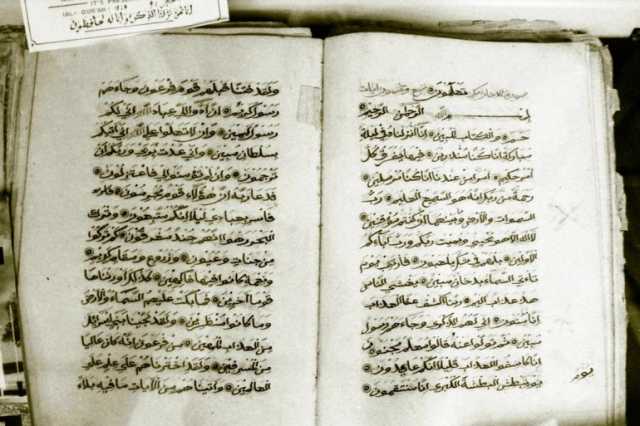 انا نحن نزلنا الذكر وانا له لحافظون
تعلمون
بسم الله الرحمن الرحيم
حم والكتاب المبين انا انزلناه في ليلة
مباركة انا كنا منذرين فيها يفرق كل
امر حكيم امرا من عندنا انا كنا مرسلين
رحمة من ربك انه هو السميع العليم رب
السموات والارض وما بينهما ان كنتم موقنين
لا اله الا هو يحيي ويميت ربكم ورب ابائكم
الاولين بل هم في شك يلعبون فارتقب يوم
تأتي السماء بدخان مبين يغشى الناس
هذا عذاب اليم ربنا اكشف عنا العذاب
انا مؤمنون انى لهم الذكرى وقد جاءهم رسول
مبين ثم تولوا عنه وقالوا معلم مجنون
انا كاشفوا العذاب قليلا انكم عائدون
يوم نبطش البطشة الكبرى انا منتقمون
ولقد فتنا قبلهم قوم فرعون وجاءهم
رسول كريم ان ادوا الي عباد الله اني لكم
رسول امين وان لا تعلوا على الله اني اتيكم
بسلطان مبين واني عذت بربي وربكم ان
ترجمون وان لم تؤمنوا لي فاعتزلون
فدعا ربه ان هؤلاء قوم مجرمون
فاسر بعبادي ليلا انكم متبعون واترك
البحر رهوا انهم جند مغرقون كم تركوا
من جنات وعيون وزروع ومقام كريم
ونعمة كانوا فيها فاكهين كذلك واورثناها
قوما اخرين فما بكت عليهم السماء والارض
وما كانوا منظرين ولقد نجينا بني اسرائيل
من العذاب المهين من فرعون انه كان عاليا
من المسرفين ولقد اخترناهم على علم على
العالمين واتيناهم من الايات ما فيه بلاء